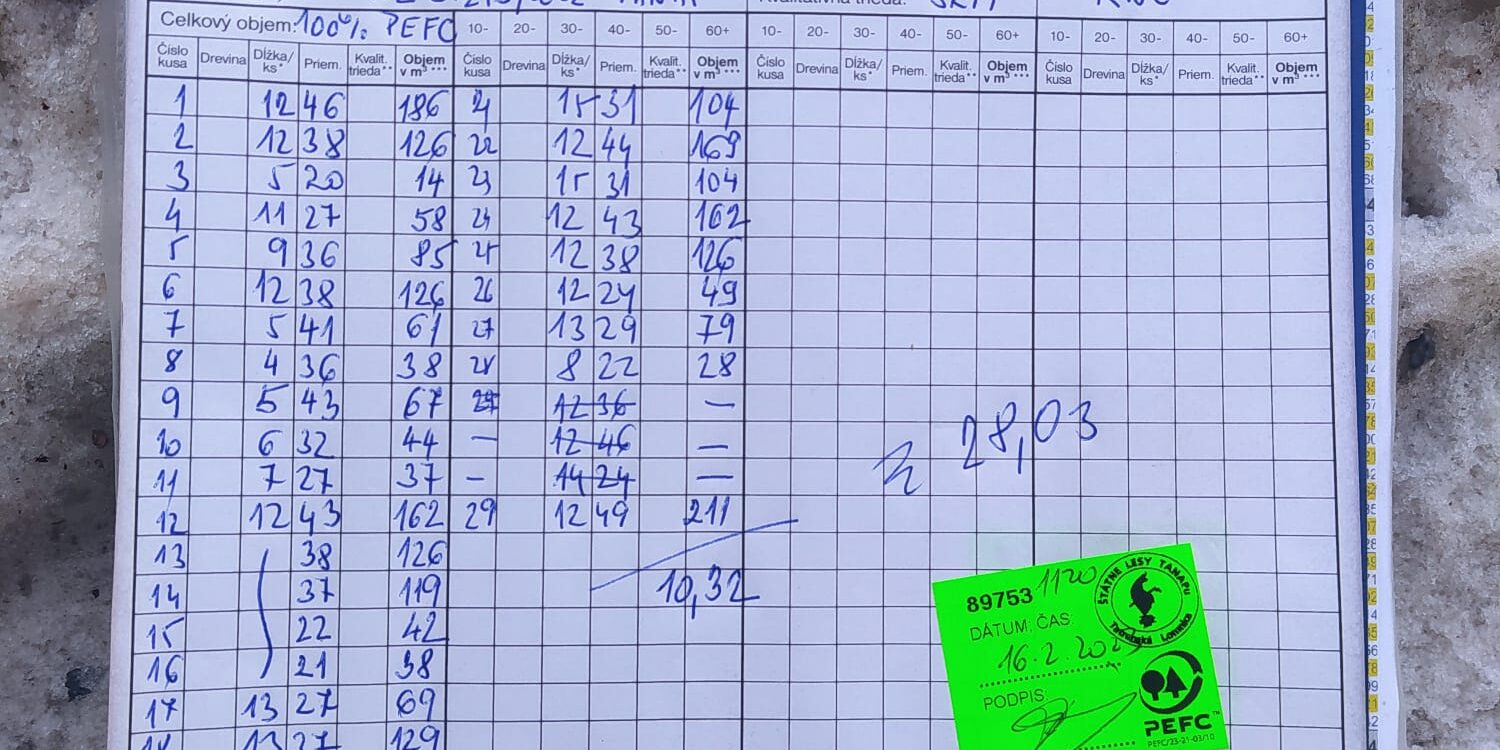 Celkový objem: 100% PEFC 10- 20- 30- 40- 50- 60+ 10- 20- 30- 40- 50- 60+ 10- 20- 30- 40- 50- 60+
Číslo kusa Drevina Dĺžka/ks* Priem. Kvalit. trieda** Objem v m³*** Číslo kusa Drevina Dĺžka/ks* Priem. Kvalit. trieda** Objem v m³*** Číslo kusa Drevina Dĺžka/ks* Priem. Kvalit. trieda** Objem v m³*** Číslo kusa Drevina Dĺžka/ks* Priem. Kvalit. trieda** Objem v m³***
1 12 46 186 21 15 31 104
2 12 38 126 22 12 44 169
3 5 20 14 23 15 31 104
4 11 27 58 24 12 43 162
5 9 36 85 25 12 38 126
6 12 38 126 26 12 24 49
7 5 41 61 27 13 29 79
8 4 36 38 28 8 22 28
9 5 43 67 12 36 —
10 6 32 44 — 12 46 —
11 7 27 37 — 14 24 —
12 12 43 162 29 12 49 211
13 38 126
14 37 119 10,32
15 22 42
16 21 38
17 13 27 69
18 13 27 129
28,03
89753 1120
ŠTÁTNE LESY TANAPU
Tatranská Lomnica
DÁTUM, ČAS:
16.2.2023
PODPIS:
PEFC™
PEFC/23-21-03/10